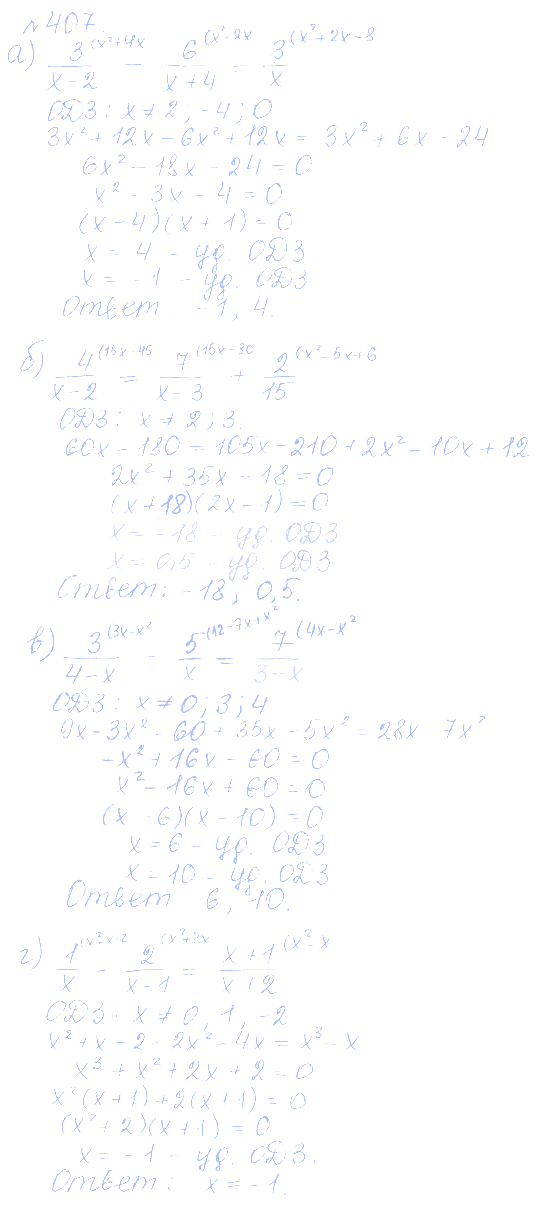 №407.
а) 3^(x²+4x / x-2 - 6^(x²-2x / x+4 = 3^(x²+2x-8 / x
ОДЗ: x ≠ 2; -4; 0
3x²+12x-6x²+12x = 3x²+6x-24
6x²-18x-24=0
x²-3x-4=0
(x-4)(x+1)=0
x=4 - уд. ОДЗ
x=-1 - уд. ОДЗ
Ответ -1, 4.
б) 4^(15x-45 / x-2 = 7^(15x-30 / x-3 + 2^(x²-5x+6 / 15
ОДЗ: x ≠ 2; 3.
60x-180=105x-210+2x²-10x+12
2x²+35x-18=0
(x+18)(2x-1)=0
x=-18 - уд. ОДЗ
x=0,5 - уд. ОДЗ
Ответ: -18; 0,5.
в) 3^(3x-x² / 4-x - 5^(12-7x+x² / x = 7^(4x-x² / 3-x
ОДЗ: x ≠ 0; 3; 4
9x-3x²-60+35x-5x²=28x 7x²
-x²+16x-60=0
x²-16x+60=0
(x-6)(x-10)=0
x=6 - уд. ОДЗ
x=10 - уд. ОДЗ
Ответ 6, 10.
г) 1^(x²+x-2 / x - 2^(x²+2x / x-1 = x+1^(x²-x / x+2
ОДЗ. x ≠ 0, 1, -2
x²+x-2-2x²-4x=x³-x
x³+x²+2x+2=0
x²(x+1)+2(x+1)=0
(x²+2)(x+1)=0
x=-1 - уд. ОДЗ.
Ответ: x=-1.